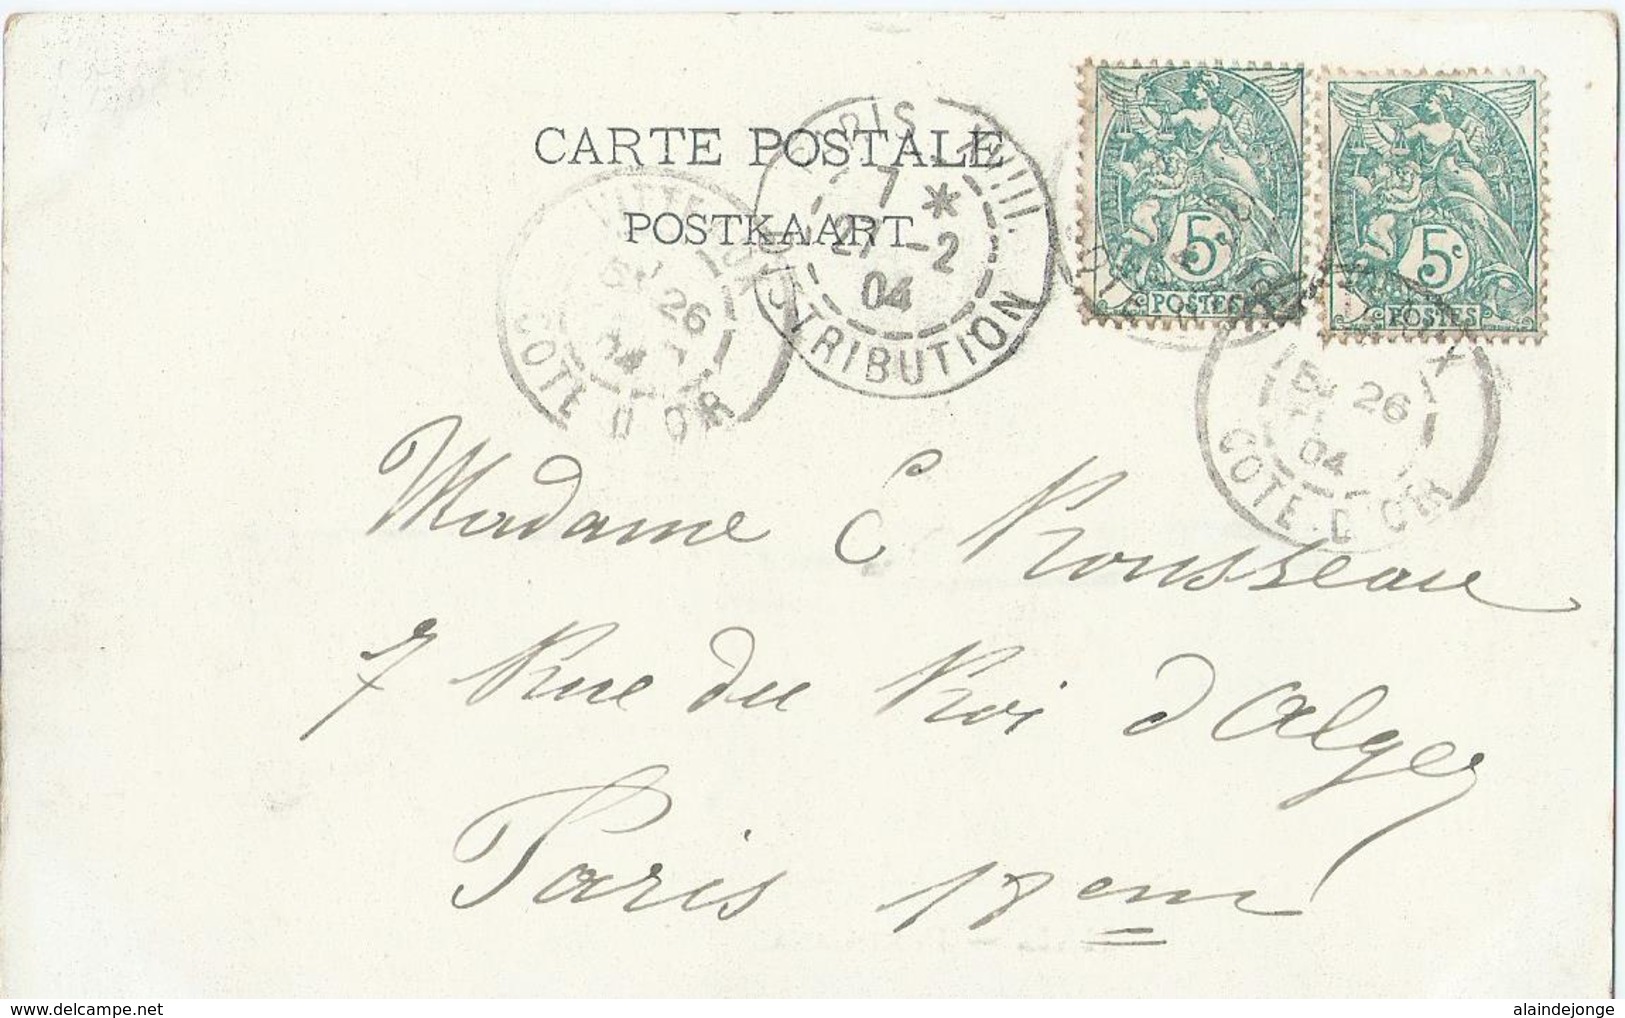 CARTE POSTALE
POSTKAART
PARIS XVIII.
7 *
27 -2
04
DISTRIBUTION
26
04
COTE D'OR
5c
POSTES
5c
POSTES
26
04
COTE-D'OR
Madame C Rousseau
7 Rue du Roi d'Alger
Paris 18em
alaindejonge